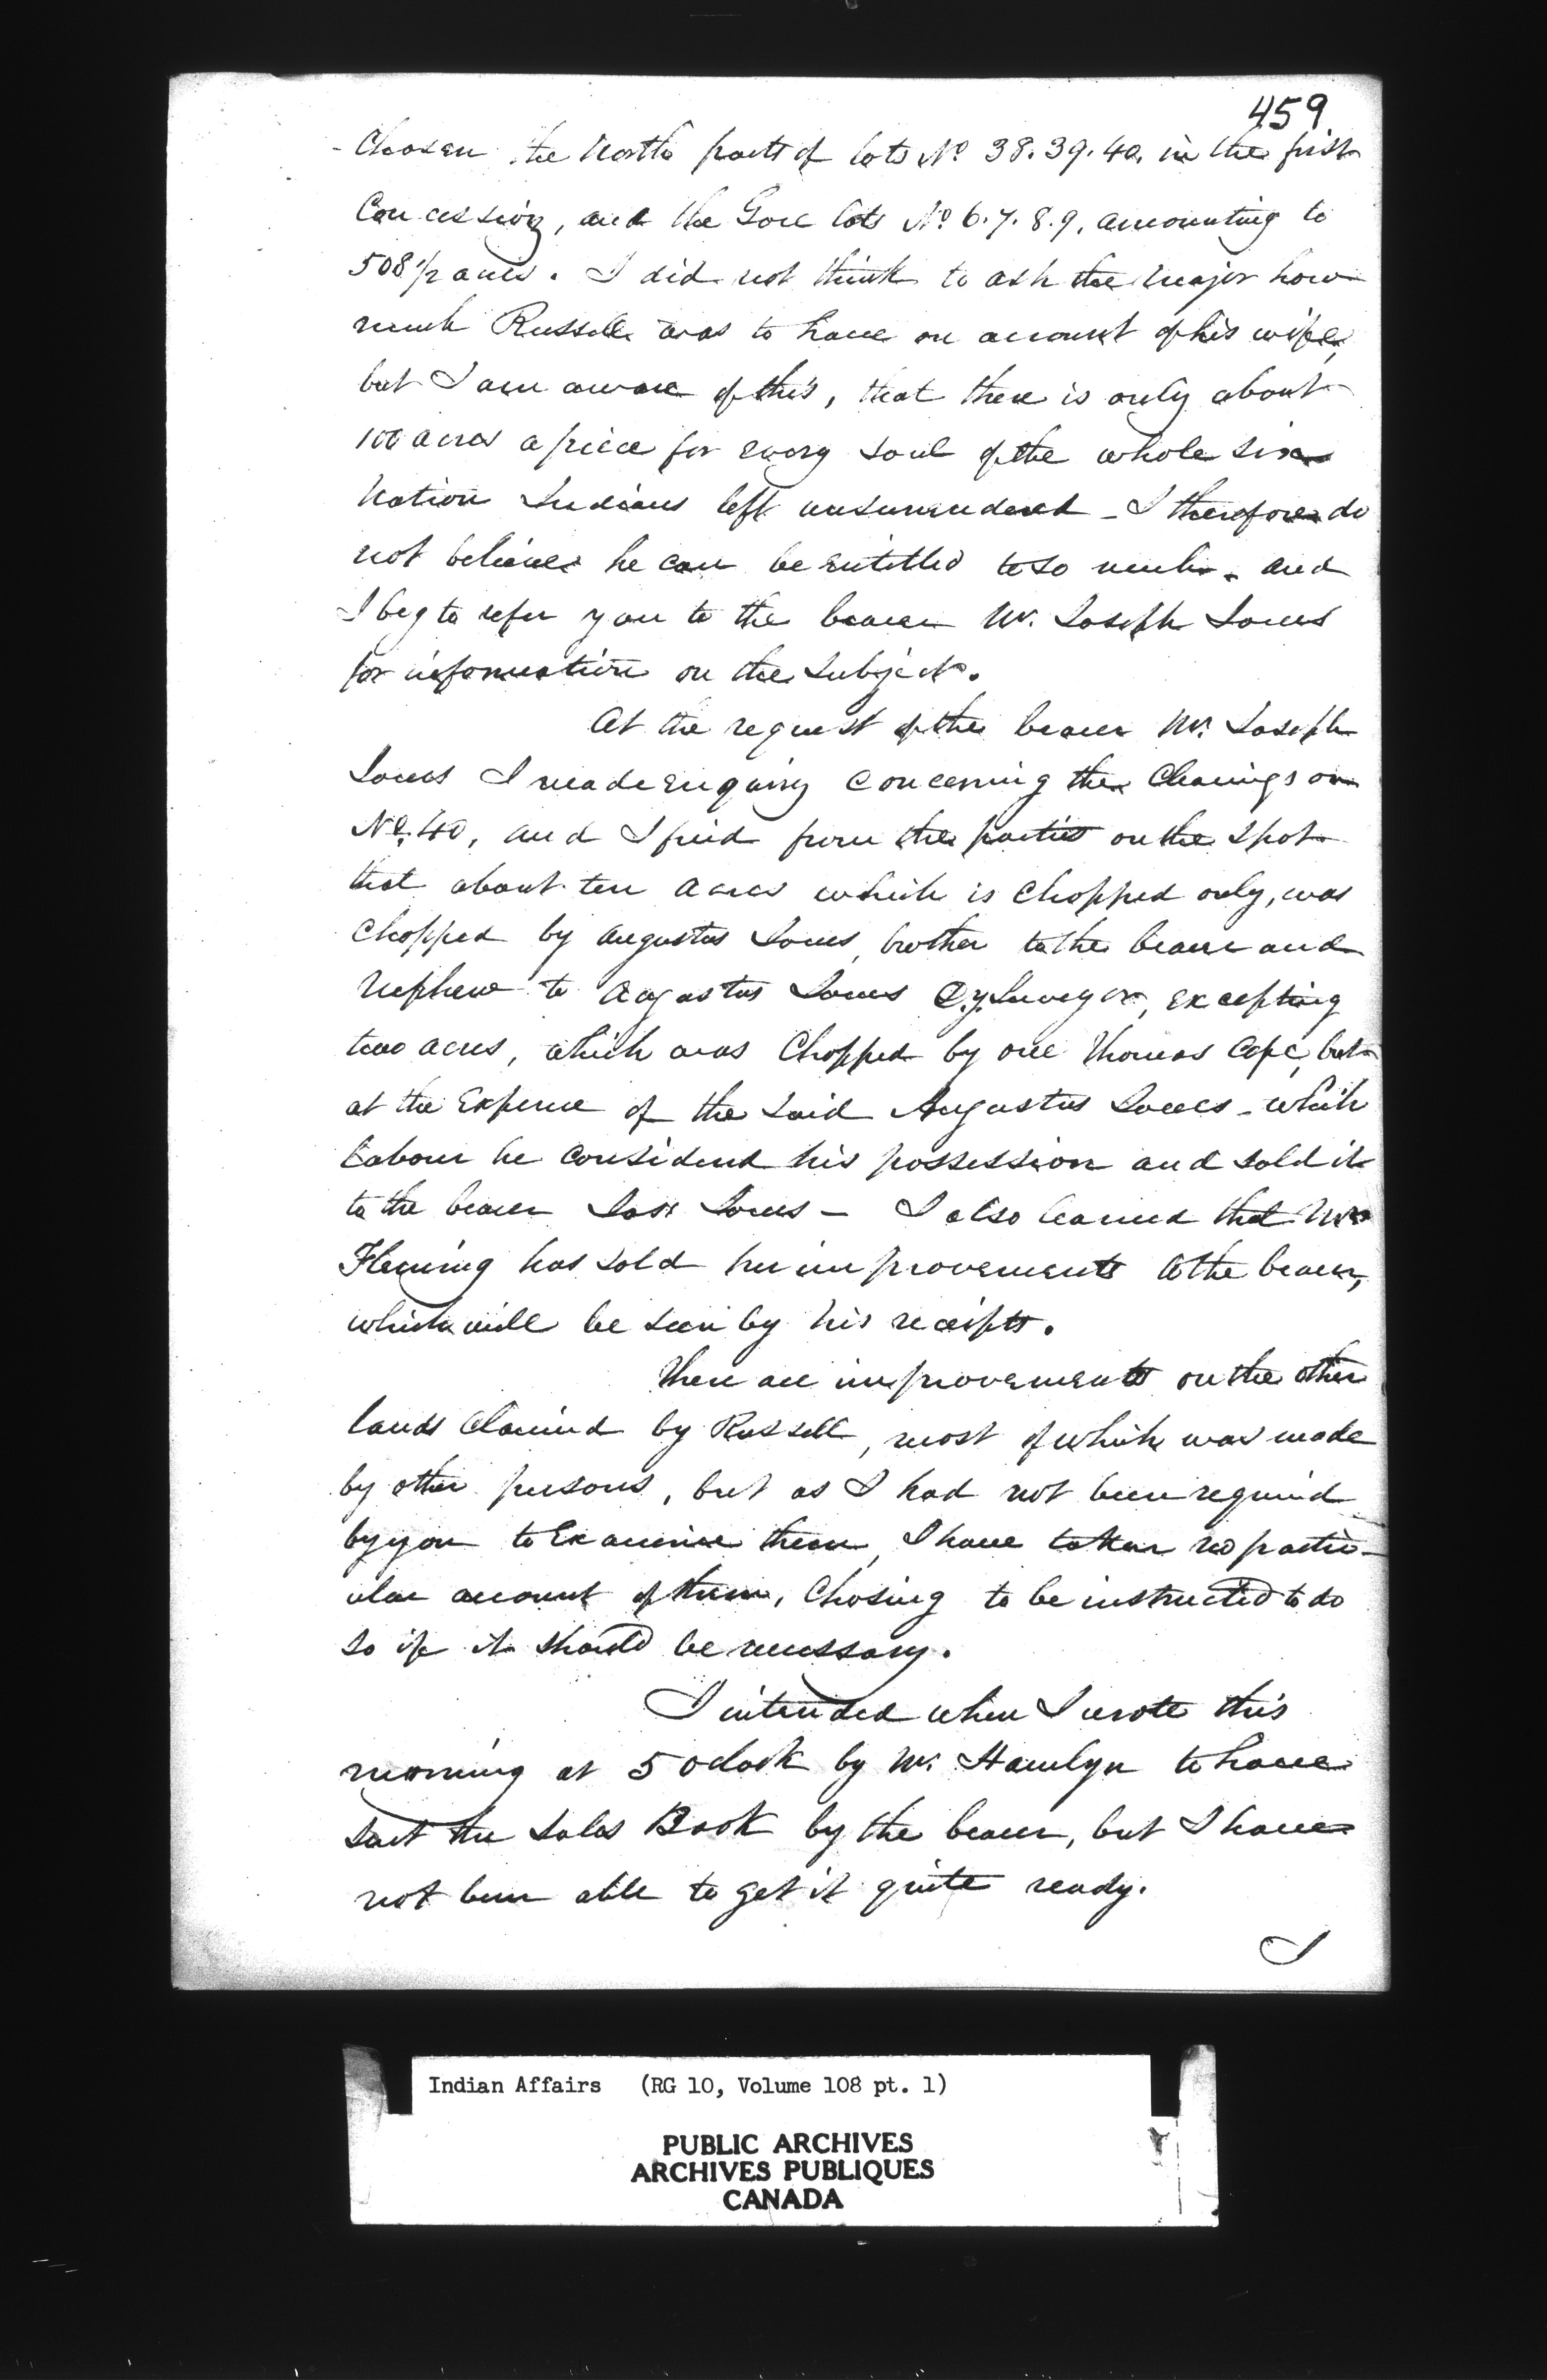 459
Chosen the North parts of lots No. 38. 39. 40. in the first
Concession, and the Gore lots No. 6. 7. 8. 9, amounting to
508 1/2 acres. I did not think to ask the Major how
much Russell was to have on account of his wife,
but I am aware of this, that there is only about
100 acres a piece for every soul of the whole Six
Nation Indians left unsurrendered - I therefore do
not believe he can be entitled to so much. and
I beg to refer you to the bearer Mr. Joseph Jones
for information on the subject.
At the request of the bearer Mr. Joseph
Jones I made enquiry concerning the Clearings on
No. 40, and I find from the parties on the spot
that about ten acres which is Chopped only, was
Chopped by Augustus Jones, brother to the bearer and
Nephew to Augustus Jones Dy. Surveyor, excepting
two acres, which was Chopped by one Thomas Cope, but
at the Expence of the said Augustus Jones - which
labour he considered his possession and sold it
to the bearer Jos: Jones - I also learned that Mrs
Fleming has sold her improvements to the bearer,
which will be seen by his receipts.
There are improvements on the other
lands Claimed by Russell, most of which was made
by other persons, but as I had not been required
by you to Examine them, I have taken no partic-
ular account of them, Chosing to be instructed to do
so if it should be necessary.
I intended when I wrote this
morning at 5 oclock by Mr. Hamlyn to have
sent the Sales Book by the bearer, but I have
not been able to get it quite ready.
I
Indian Affairs (RG 10, Volume 108 pt. 1)
PUBLIC ARCHIVES
ARCHIVES PUBLIQUES
CANADA